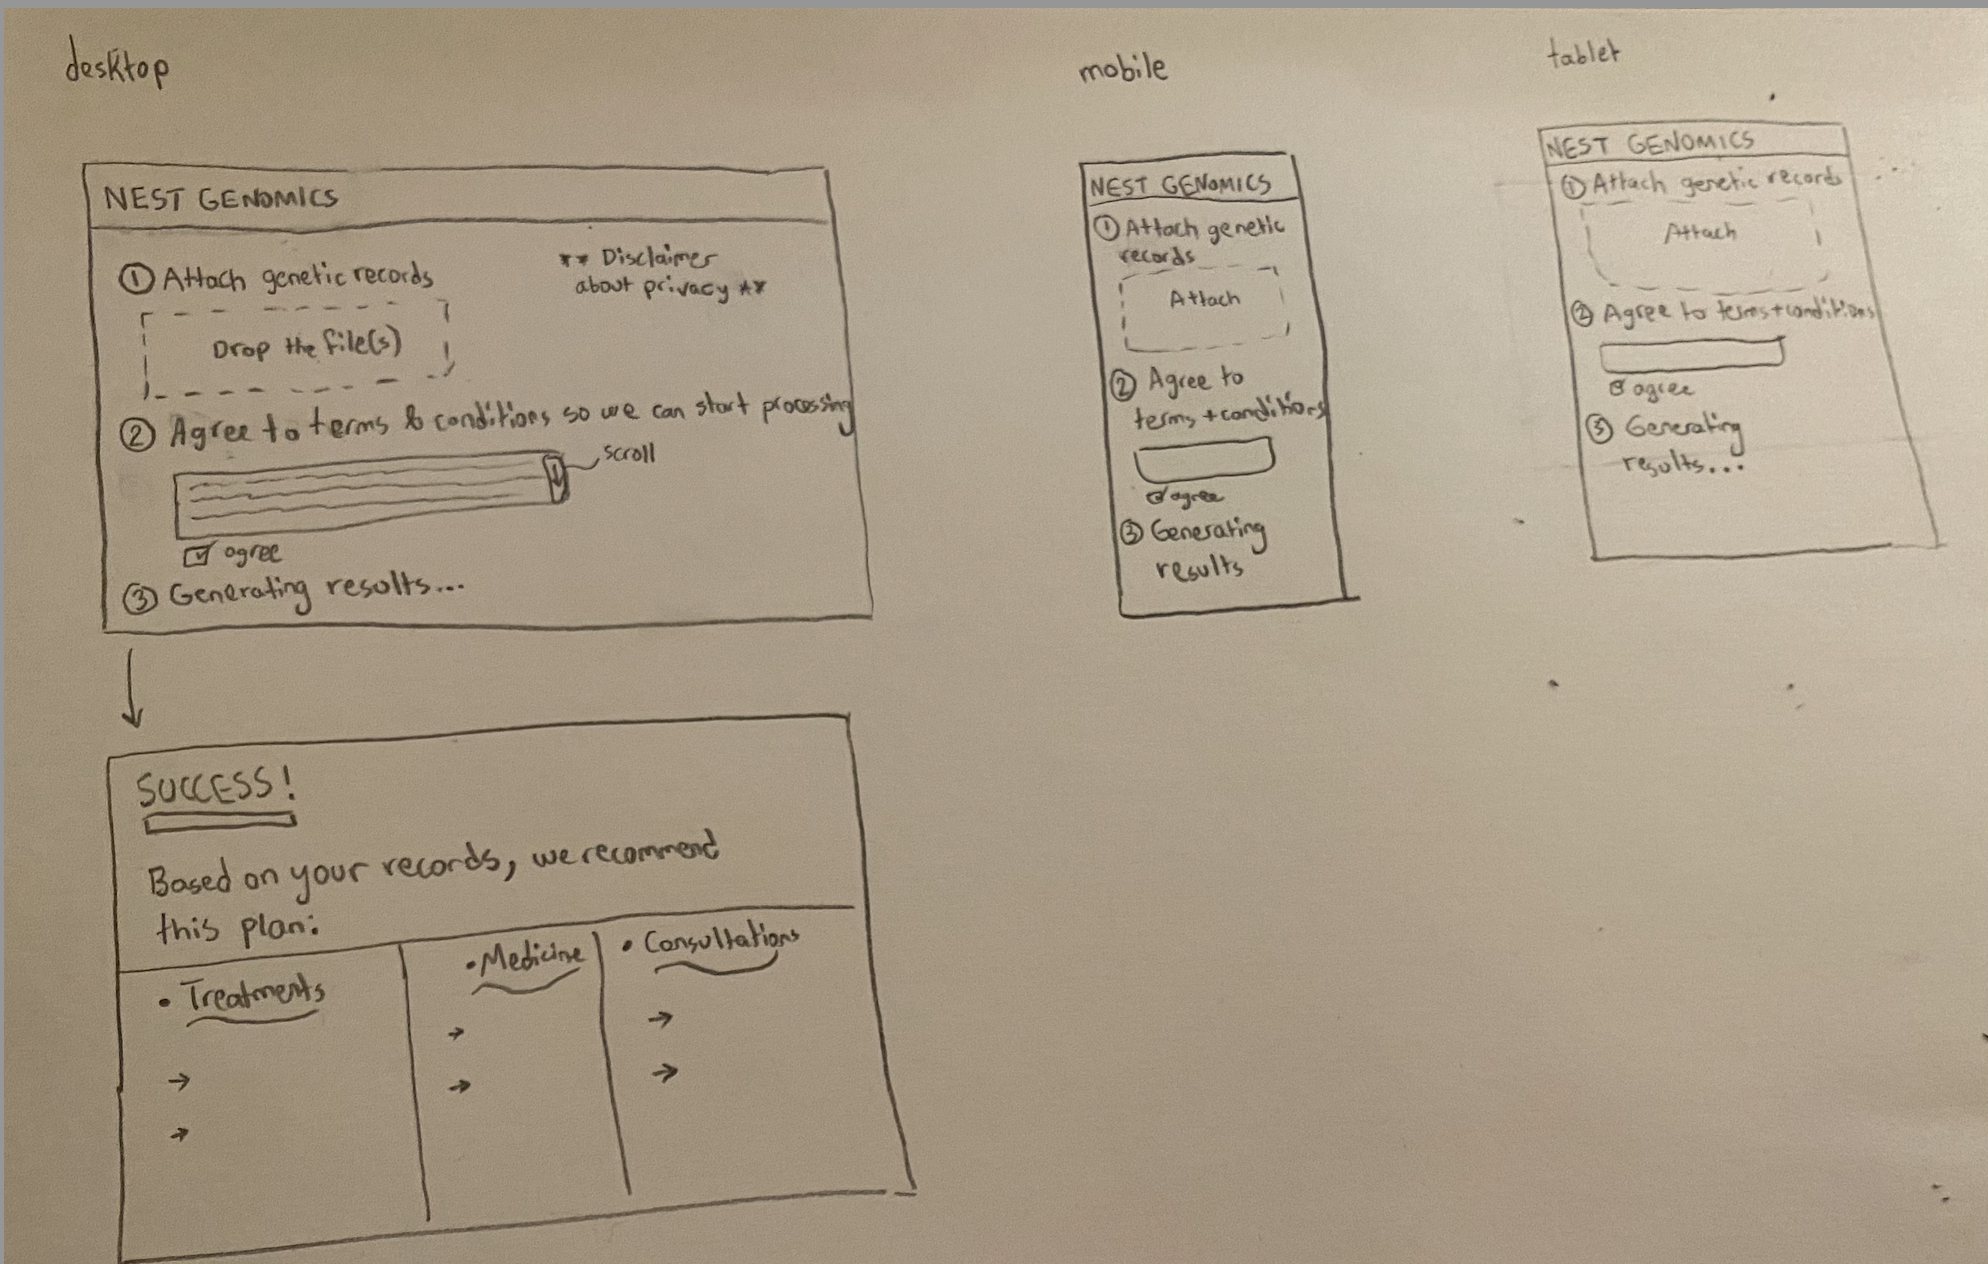 desktop
NEST GENOMICS
① Attach genetic records
** Disclaimer
about privacy **
Drop the file(s)
② Agree to terms & conditions so we can start processing
scroll
agree
③ Generating results...
SUCCESS!
Based on your records, we recommend
this plan:
• Treatments
→
→
• Medicine
→
→
• Consultations
→
→
mobile
NEST GENOMICS
① Attach genetic
records
Attach
② Agree to
terms + conditions
agree
③ Generating
results
tablet
NEST GENOMICS
① Attach genetic records
Attach
② Agree to terms + conditions
agree
③ Generating
results...